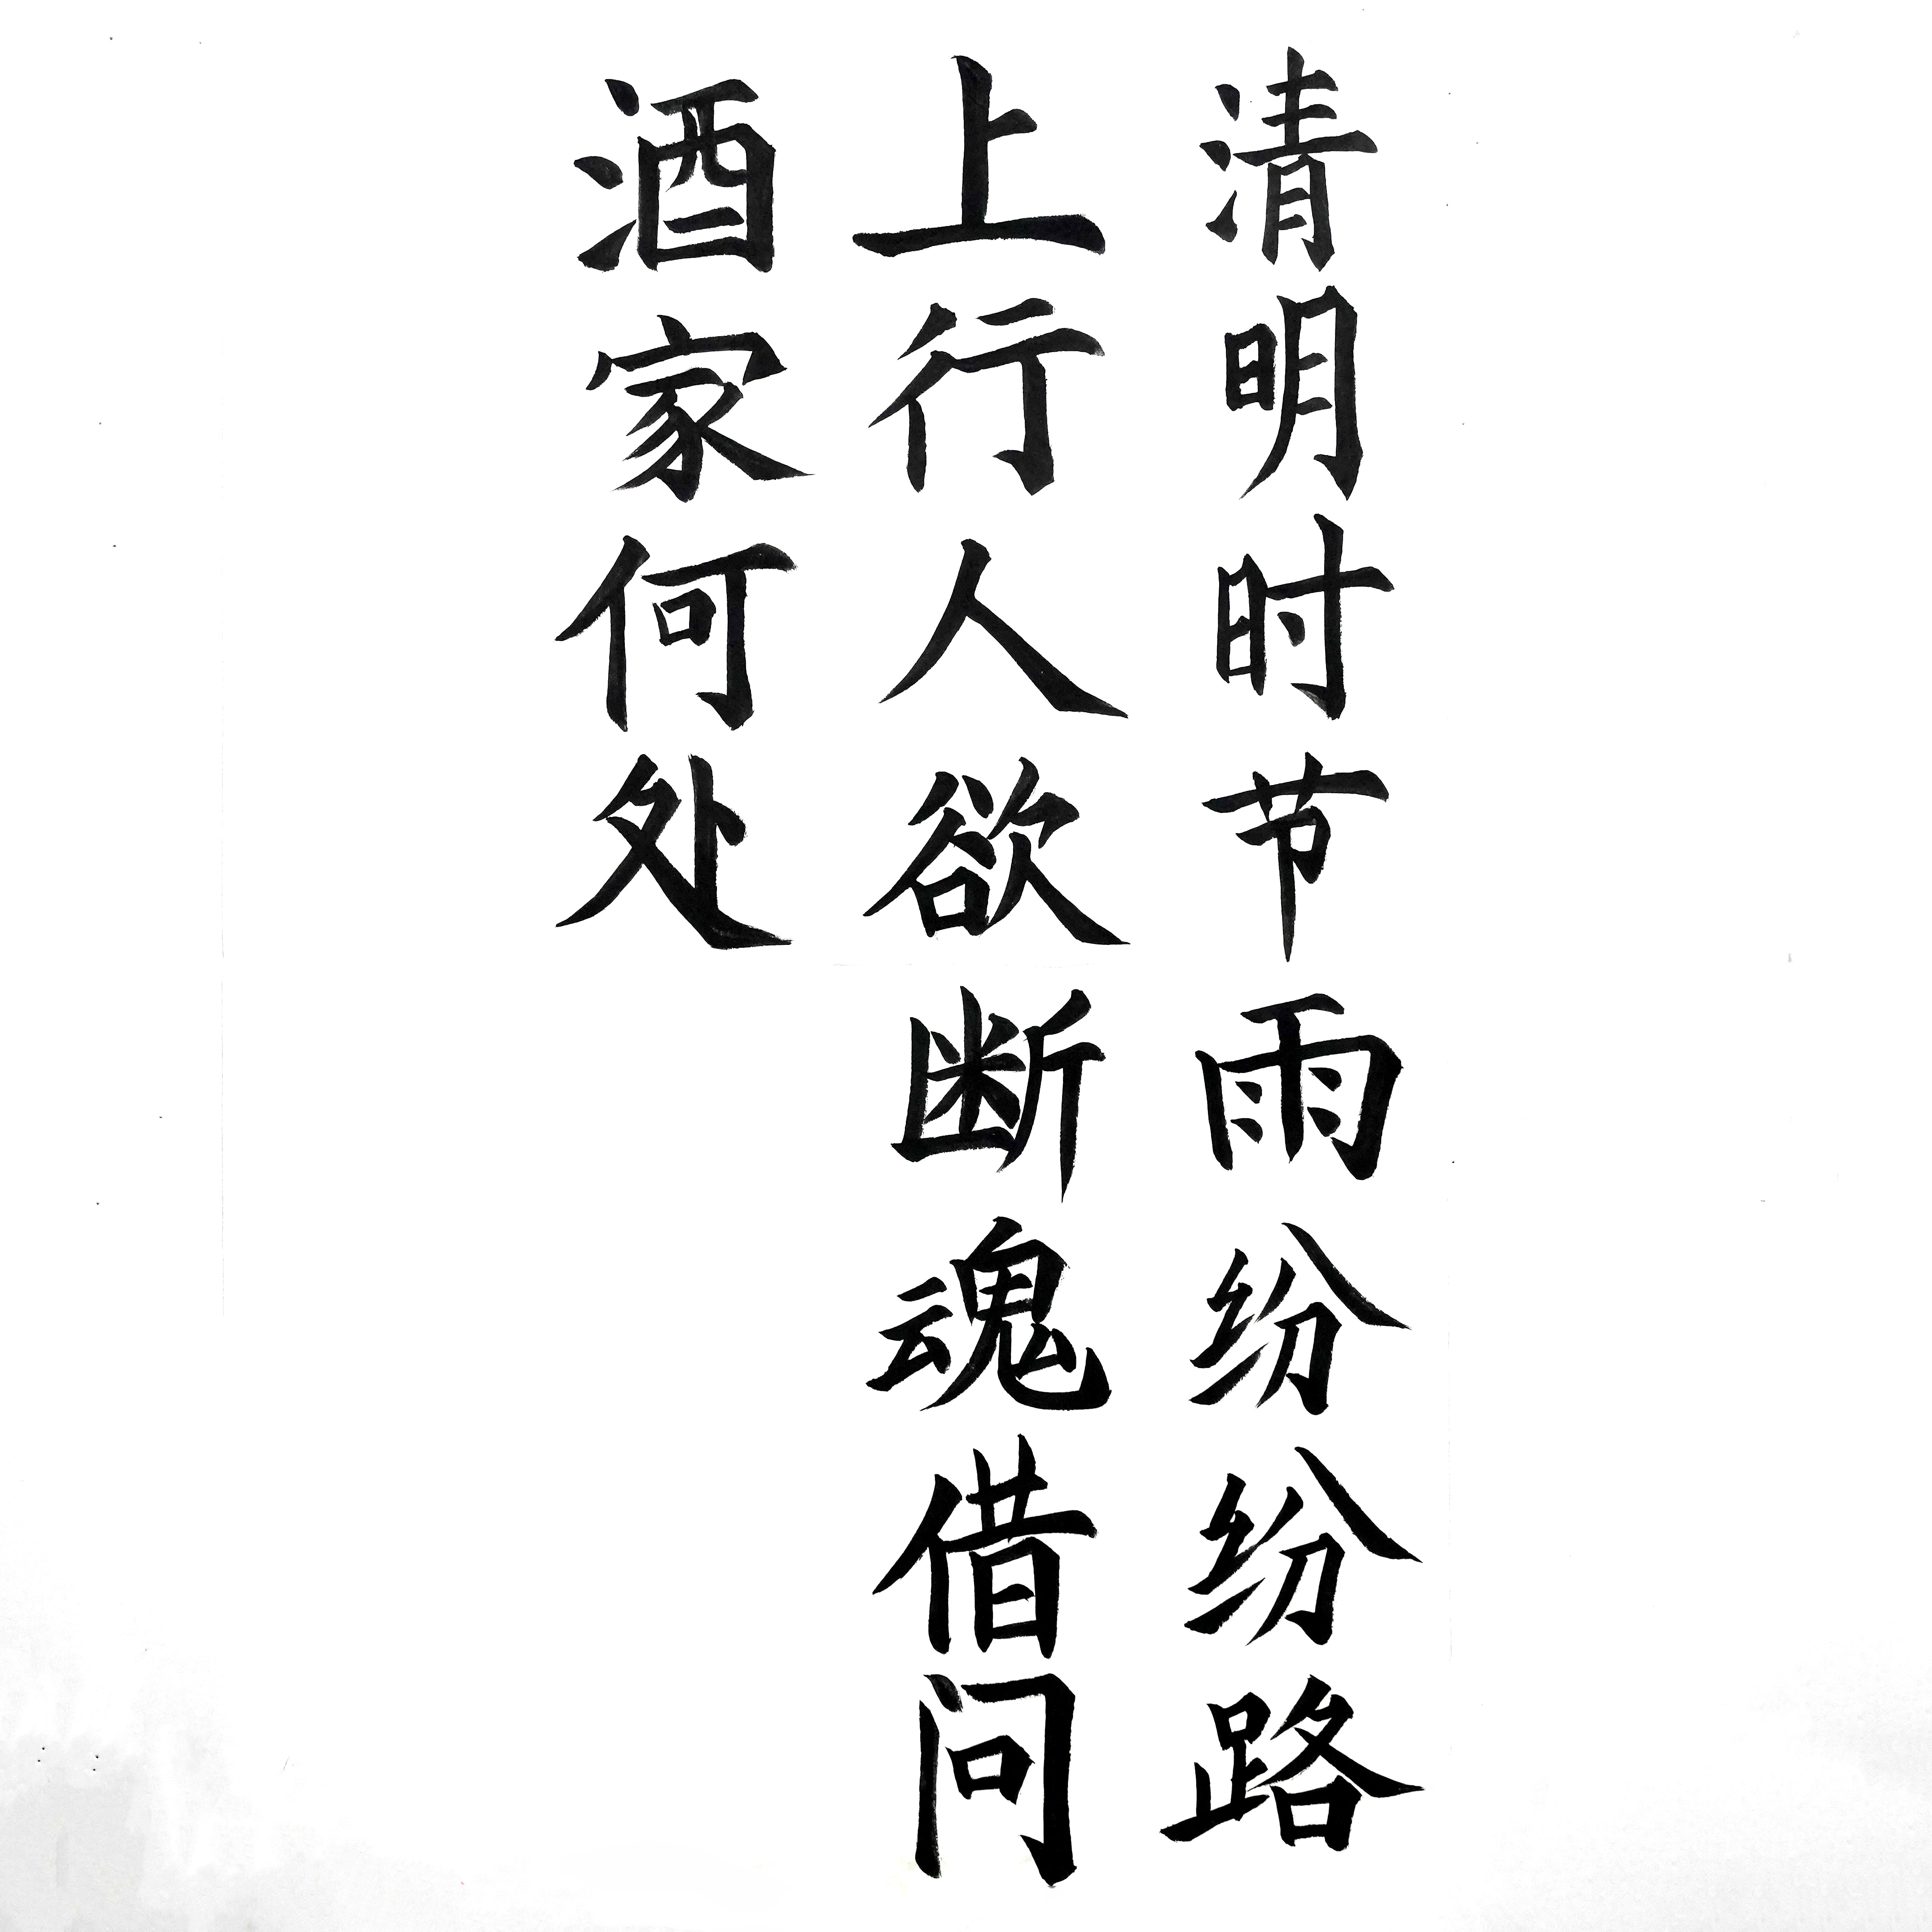 清明时节雨纷纷路
上行人欲断魂借问
酒家何处